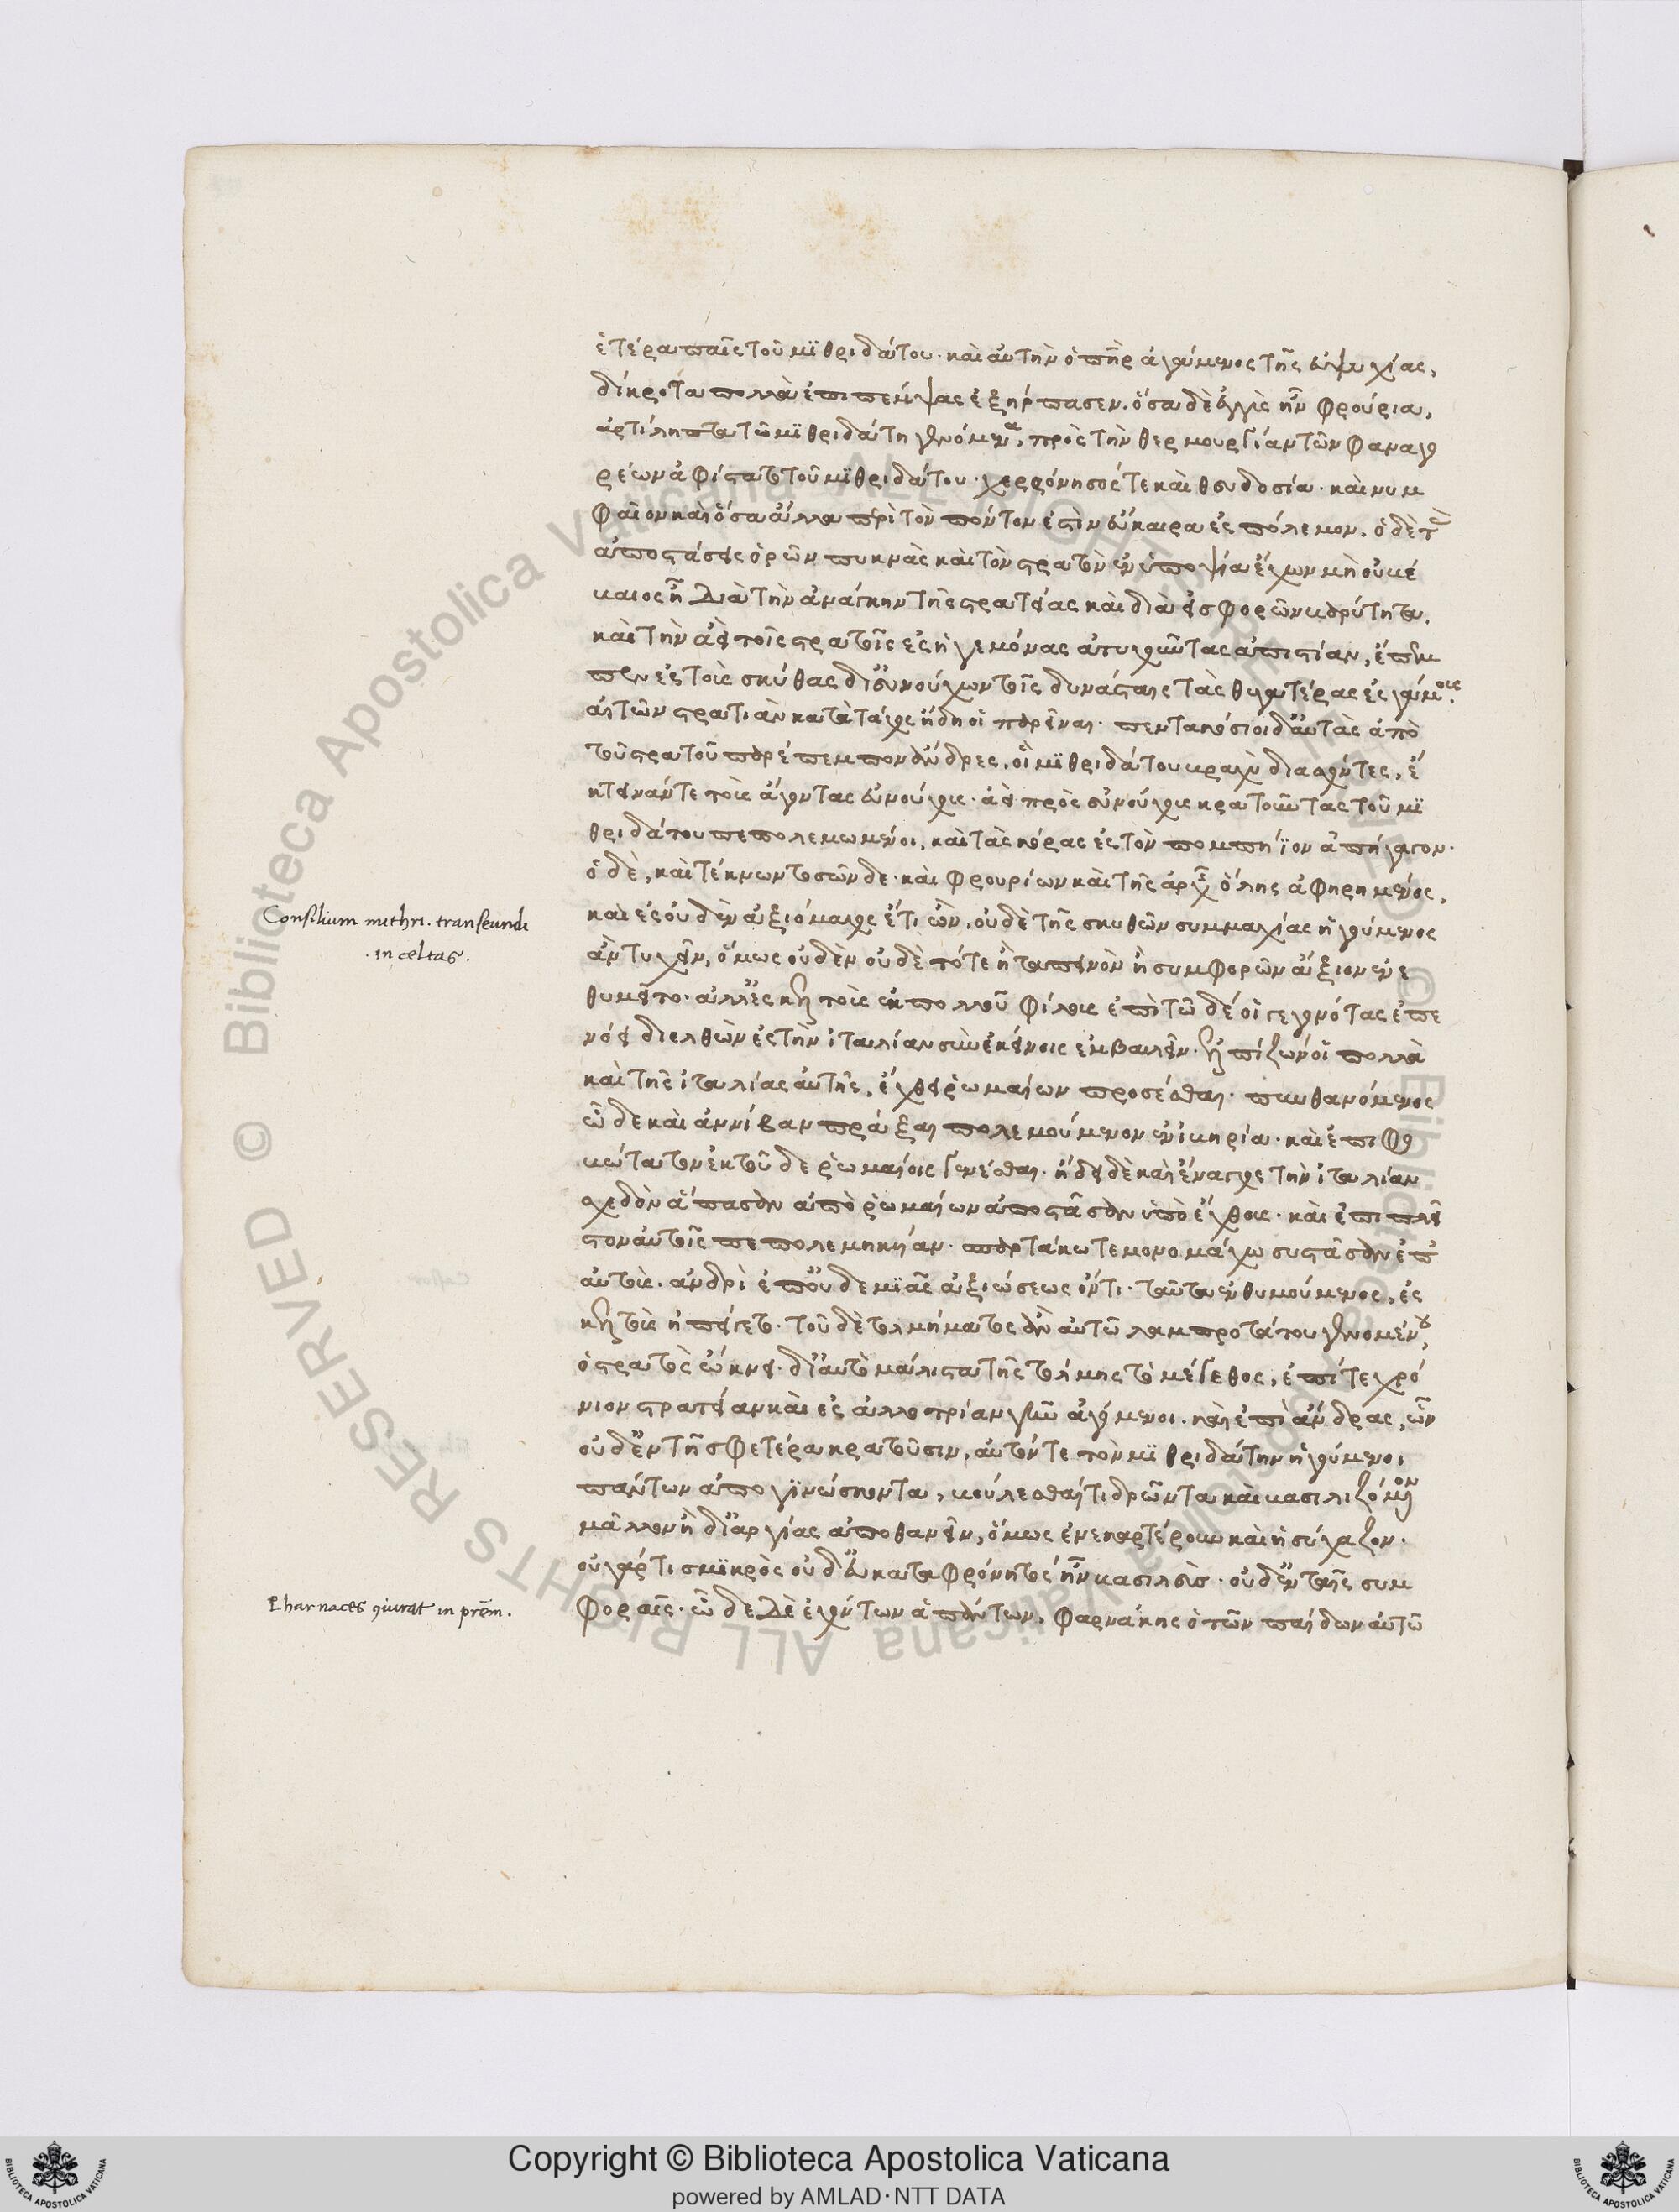 ἑτέρα παῖς τοῦ μιθριδάτου· καὶ αὐτὴν ὁ πὴρ ἀγάμενος τῆς εὐψυχίας,
δίκροτα πολλὰ ἐπιπέμψας ἐξήρπασεν. ὅσα δὲ ἐγγὺς ἦν φρούρια,
ἀρτίληπτα τῶ μιθριδάτη γενόμενα, πρὸς τὴν θερμουργίαν τῶν φαναγο
ρέων ἀφίστατο τοῦ μιθριδάτου· χερρόνησός τε καὶ θευδοσία· καὶ νυμ
φαῖον καὶ ὅσα ἄλλα περὶ τὸν πόντον ἐστὶν εὔκαιρα ἐς πόλεμον. ὁ δὲ τὰς
ἀποστάσεις ὁρῶν πυκνὰς καὶ τὸν στρατὸν ἐν ὑποψία ἔχων μὴ οὐ βέ
βαιος ῆ διὰ τὴν ἀνάγκην τῆς στρατείας καὶ διὰ εἰσφορῶν βαρύτητα.
καὶ τὴν ἀεὶ τοῖς στρατοῖς ἐς ἡγεμόνας ἀτυχοῦντας ἀπιστίαν, ἔπεμ
πεν ἐς τοὺς σκύθας δι' εὐνούχων τοῖς δυνάσταις τὰς θυγατέρας ἐς γάμους.
αἰτῶν στρατιὰν κατὰ τάχος ἤδη οἱ παρεῖναι. πεντακόσιοι δ' αὐτὰς ἀπὸ
τοῦ στρατοῦ παρέπεμπον ἄνδρες, οἳ μιθριδάτου βραχὺ διασχόντες, ἔ
κτεινάν τε τοὺς ἄγοντας εὐνούχους· ἀεὶ πρὸς εὐνούχους κρατοῦντας τοῦ μι
θριδάτου πεπολεμωμένοι, καὶ τὰς κόρας ἐς τὸν πομπήϊον ἀπήγαγον.
ὁ δὲ, καὶ τέκνων τοσῶνδε· καὶ φρουρίων καὶ τῆς ἀρχῆς ὅλης ἀφηρημένος,
καὶ ἐς οὐδὲν ἀξιόμαχος ἔτι ὢν, οὐδὲ τῆς σκυθῶν συμμαχίας ἡγούμενος
ἂν τυχεῖν, ὅμως οὐδὲν οὐδὲ τότε ἢ ταπεινὸν ἢ συμφορῶν ἄξιον ἐνε
θυμεῖτο· ἀλλ' ἐς κελτοὺς ἐκ πολλοῦ φίλους ἐπὶ τῶδέ οἱ γεγονότας ἐπε
νόει διελθὼν ἐς τὴν ἰταλίαν σὺν ἐκείνοις ἐμβαλεῖν. ἐλπίζων οἱ πολλὰ
καὶ τῆς ἰταλίας αὐτῆς, ἔχθει ῥωμαίων προσέσεσθαι. πυνθανόμενος
ὧδε καὶ ἀννίβαν πρᾶξαι πολεμούμενον ἐν ἰβηρία· καὶ ἐπιφο
βώτατον ἐκ τοῦδε ῥωμαίοις γενέσθαι. ἤδει δὲ καὶ ἔναγχος τὴν ἰταλίαν
σχεδὸν ἅπασαν ἀπὸ ῥωμαίων ἀποστᾶσαν ὑπὸ ἔχθους· καὶ ἐπὶ πλεῖ
στον αὐτοῖς πεπολεμηκυῖαν· σπαρτάκω τε μονομάχω συστᾶσαν ἐπ'
αὐτοὺς. ἀνδρὶ ἐπ' οὐδεμιᾶς ἀξιώσεως ὄντι. ταῦτα ἐνθυμούμενος, ἐς
κελτοὺς ἠπείγετο. τοῦ δὲ τολμήματος ἂν αὐτῶ λαμπροτάτου γενομένου,
ὁ στρατὸς ὤκνει· δι' αὐτὸ μάλιστα τῆς τόλμης τὸ μέγεθος, ἐπί τε χρό
νιον στρατείαν καὶ ἐς ἀλλοτρίαν γῆν ἀγόμενοι. καὶ ἐπὶ ἄνδρας, ὧν
οὐδ' ἐν τῆ σφετέρα κρατοῦσιν, αὐτόν τε τὸν μιθριδάτην ἡγούμενοι
πάντων ἀπογινώσκοντα, βούλεσθαί τι δρῶντα καὶ βασιλιζόμενον
μᾶλλον ἢ δι' ἀργίας ἀποθανεῖν, ὅμως ἐνεκαρτέρουν καὶ ἡσύχαζον.
οὐ γάρ τι σμικρὸς οὐδ' εὐκαταφρόνητος ἦν βασιλεὺς· οὐδ' ἐν ταῖς συμ
φοραῖς. ὧδε δὲ ἐχόντων ἁπάντων, φαρνάκης ὁ τῶν παίδων αὐτῶ
Consilium mithri. transeundi
in celtas.
Pharnaces 9iurat in prēm.
Copyright © Biblioteca Apostolica Vaticana
powered by AMLAD·NTT DATA
© Biblioteca Apostolica Vaticana ALL RIGHTS RESERVED